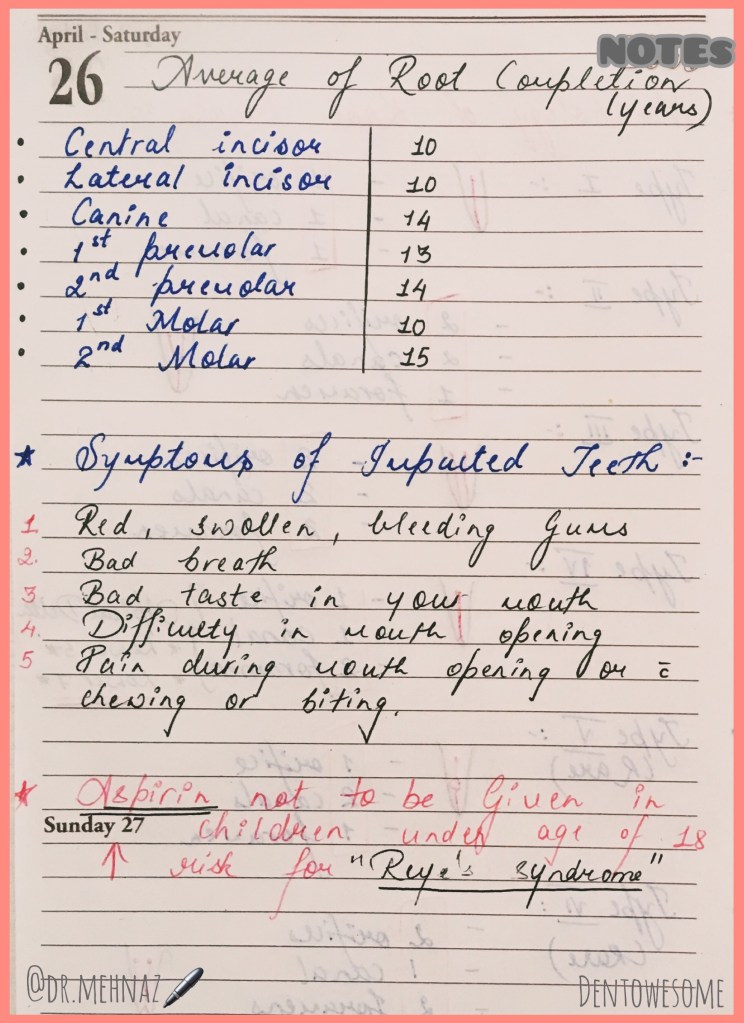 April - Saturday
NOTES
26 Average of Root Completion
(years)
• Central incisor 10
• Lateral incisor 10
• Canine 14
• 1st premolar 13
• 2nd premolar 14
• 1st Molar 10
• 2nd Molar 15
★ Symptoms of Impacted Teeth :-
1 Red, swollen, bleeding Gums
2. Bad breath
3. Bad taste in your mouth
4. Difficulty in mouth opening
5 Pain during mouth opening or c̄
chewing or biting.
★ Aspirin not to be Given in
Sunday 27 children under age of 18
↑ risk for "Reye's syndrome"
@DR.MEHNAZ
DENTOWESOME